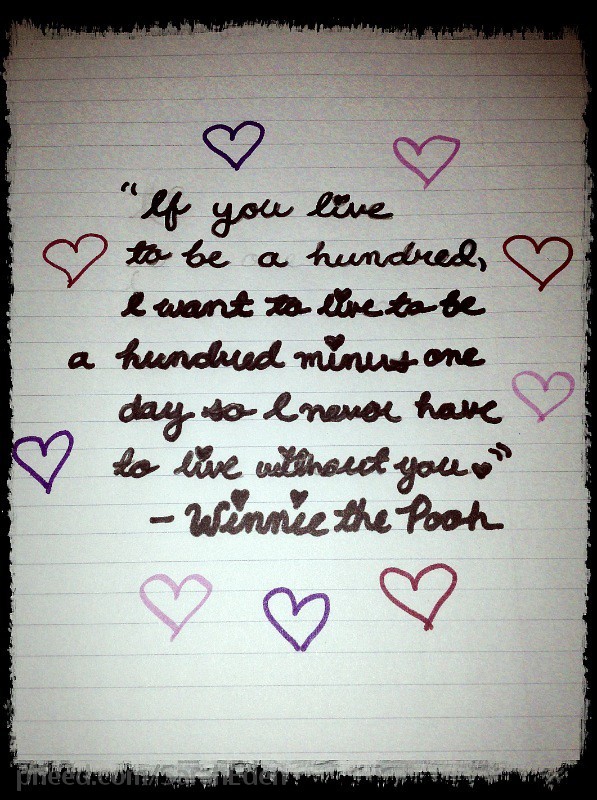 "If you live
to be a hundred,
I want to live to be
a hundred minus one
day so I never have
to live without you."
- Winnie the Pooh